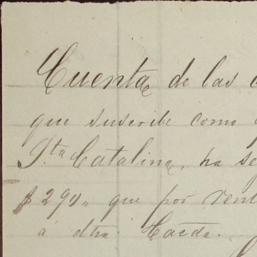 Cuenta de las
que suscribe como
Sta Catalina, ha se
$290„ que por vent
á dha. Hacda.